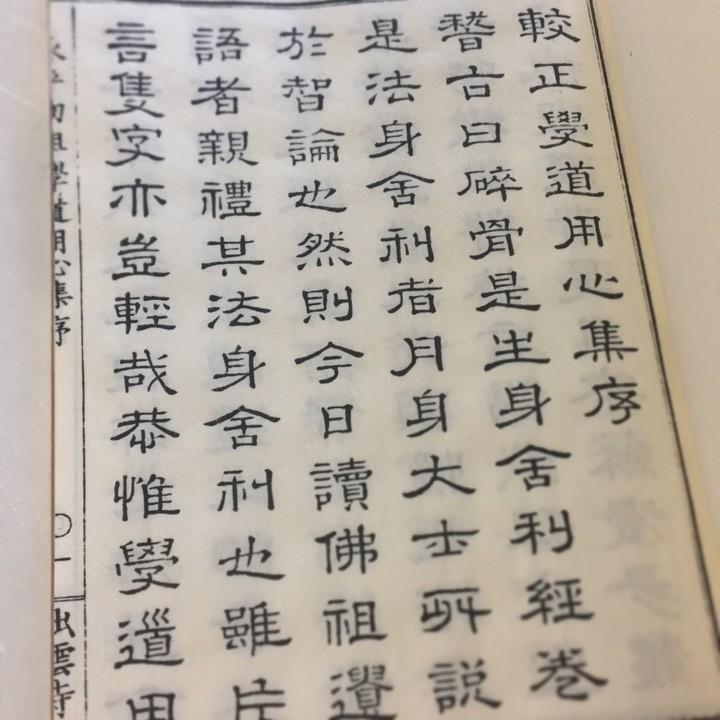 較正學道用心集序
稽古曰碎骨是生身舍利經卷
是法身舍利者月身大士所説
於智論也然則今日讀佛祖遺
語者親禮其法身舍利也雖片
言隻字亦豈輕哉恭惟學道用
永平初祖學道用心集序
〇一
出雲寺